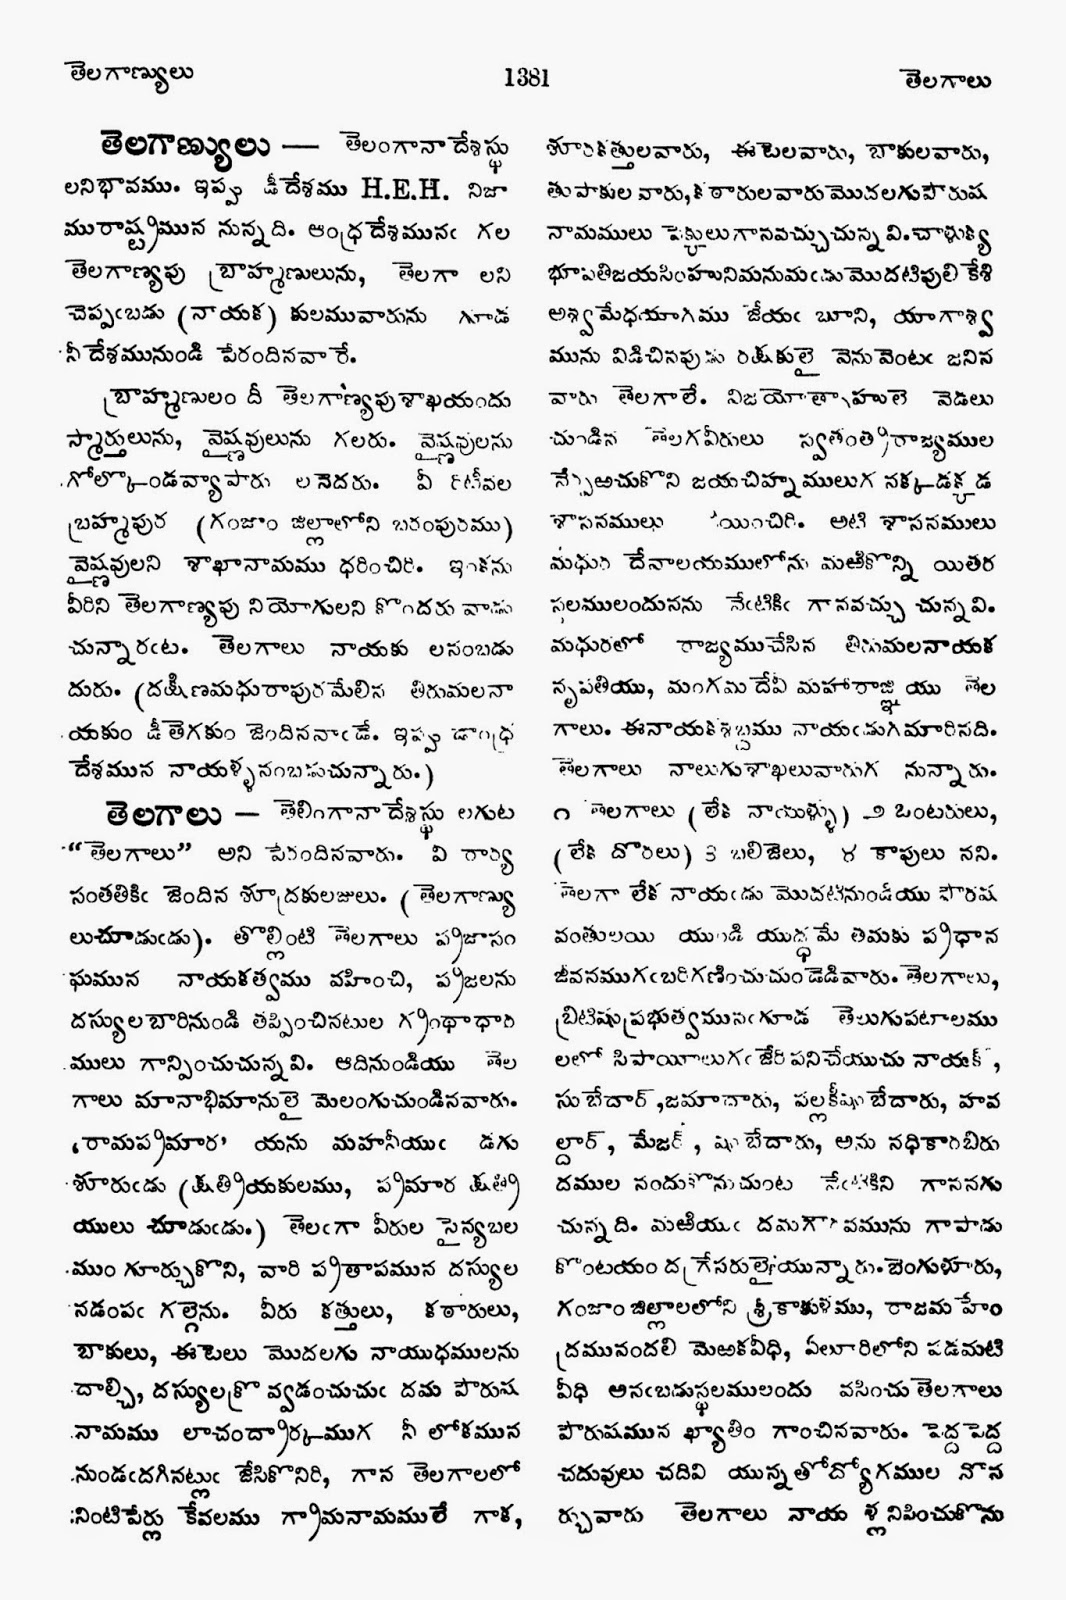 తెలగాణ్యులు
1381
తెలగాలు
తెలగాణ్యులు — తెలంగానాదేశస్థు
లనిభావము. ఇప్పు డీదేశము H.E.H. నిజా
మురాష్ట్రమున నున్నది. ఆంధ్రదేశమునఁ గల
తెలగాణ్యపు బ్రాహ్మణులును, తెలగా లని
చెప్పఁబడు (నాయక) కులమువారును గూడ
నీదేశమునుండి పేరందినవారే.
బ్రాహ్మణులం దీ తెలగాణ్యపుశాఖయందు
స్మార్తులును, వైష్ణవులును గలరు. వైష్ణవులను
గోల్కొండవ్యాపారు లనెదరు. వీ రిటీవల
బ్రహ్మపుర (గంజాం జిల్లాలోని బరంపురము)
వైష్ణవులని శాఖానామము ధరించిరి. ఇంకను
వీరిని తెలగాణ్యపు నియోగులని కొందరు వాడు
చున్నారఁట. తెలగాలు నాయకు లనంబడు
దురు. (దక్షిణమధురాపురమేలిన తిరుమలనా
యకుం డీతెగకుం జెందిననాఁడే. ఇప్పు డాంధ్ర
దేశమున నాయళ్ళనంబడుచున్నారు.)
తెలగాలు — తెలింగానాదేశస్థు లగుట
“తెలగాలు” అని పేరందినవారు. వీ రార్య
సంతతికిఁ జెందిన శూద్రకులజులు. (తెలగాణ్యు
లుచూడుఁడు). తొల్లింటి తెలగాలు ప్రజాసం
ఘమున నాయకత్వము వహించి, ప్రజలను
దస్యులబారినుండి తప్పించినటుల గ్రంథాధార
ములు గాన్పించుచున్నవి. ఆదినుండియు తెల
గాలు మానాభిమానులై మెలంగుచుండినవారు.
‘రామప్రమార’ యను మహనీయుఁ డగు
శూరుఁడు (క్షత్రియకులము, ప్రమార క్షత్రి
యులు చూడుఁడు.) తెలఁగా వీరుల సైన్యబల
ముం గూర్చుకొని, వారి ప్రతాపమున దస్యుల
నడంపఁ గల్గెను. వీరు కత్తులు, కఠారులు,
బాకులు, ఈటెలు మొదలగు నాయుధములను
దాల్చి, దస్యులక్రొ వ్వడంచుచుఁ దమ పౌరుష
నామము లాచంద్రార్కముగ నీ లోకమున
నుండఁదగినట్లుఁ జేసికొనిరి, గాన తెలగాలలో
నింటిపేర్లు కేవలము గ్రామనామములే గాక,
శూరికత్తులవారు, ఈటెలవారు, బాకులవారు,
తుపాకులవారు,కఠారులవారు మొదలగుపౌరుష
నామములు పెక్కులుగానవచ్చుచున్నవి.చాళుక్య
భూపతిజయసింహునిమనుమఁడుమొదటిపులి కేశి
అశ్వమేధయాగము జేయఁ బూని, యాగాశ్వ
మును విడిచినపుడు రక్షకులై వెనువెంటఁ జనిన
వారు తెలగాలే. నిజయోత్సాహులై వెడలు
చుండిన తెలగవీరులు స్వతంత్రరాజ్యముల
నేర్పఱచుకొని జయచిహ్నములుగ నక్కడక్కడ
శాసనములు వ్రాయించిరి. అటి శాసనములు
మధుర దేవాలయములోను మఱికొన్ని యితర
స్థలములందునను నేఁటికిఁ గానవచ్చు చున్నవి.
మధురలో రాజ్యముచేసిన తిరుమలనాయక
నృపతియు, మంగమదేవీ మహారాజ్ఞియు తెల
గాలు. ఈనాయకశబ్దము నాయఁడుగమారినది.
తెలగాలు నాలుగుశాఖలువారుగ నున్నారు.
౧ తెలగాలు (లేక నాయుళ్ళు) ౨ ఒంటరులు,
(లేక దొరలు) ౩ బలిజెలు, ౪ కాపులు నని.
తెలగా లేక నాయఁడు మొదటినుండియు పౌరుష
వంతులయి యుండి యుద్ధమే తమకు ప్రధాన
జీవనముగఁబరిగణించుచుండెడివారు. తెలగాలు,
బ్రిటిషుప్రభుత్వమునఁగూడ తెలుగుపటాలము
లలో సిపాయీలుగఁజేరి పనిచేయుచు నాయక్,
సుబేదార్,జమాదారు, పల్లకీషుబేదారు, హవ
ల్దార్, మేజర్, షుబేదారు, అను నధికారబిరు
దముల నందుకొనుచుంట నేఁటికిని గాననగు
చున్నది. మఱియుఁ దమగౌరవమును గాపాడు
కొంటయం దగ్రేసరులైయున్నారు.బెంగుళూరు,
గంజాంజిల్లాలలోని శ్రీకాకుళము, రాజమహేం
ద్రమునందలి మెఱకవీధి, ఏలూరిలోని పడమటి
వీధి అనఁబడుస్థలములందు వసించుతెలగాలు
పౌరుషమున ఖ్యాతిం గాంచినవారు. పెద్దపెద్ద
చదువులు చదివి యున్నతోద్యోగముల నొన
ర్చువారు తెలగాలు నాయళ్లనిపించుకొను